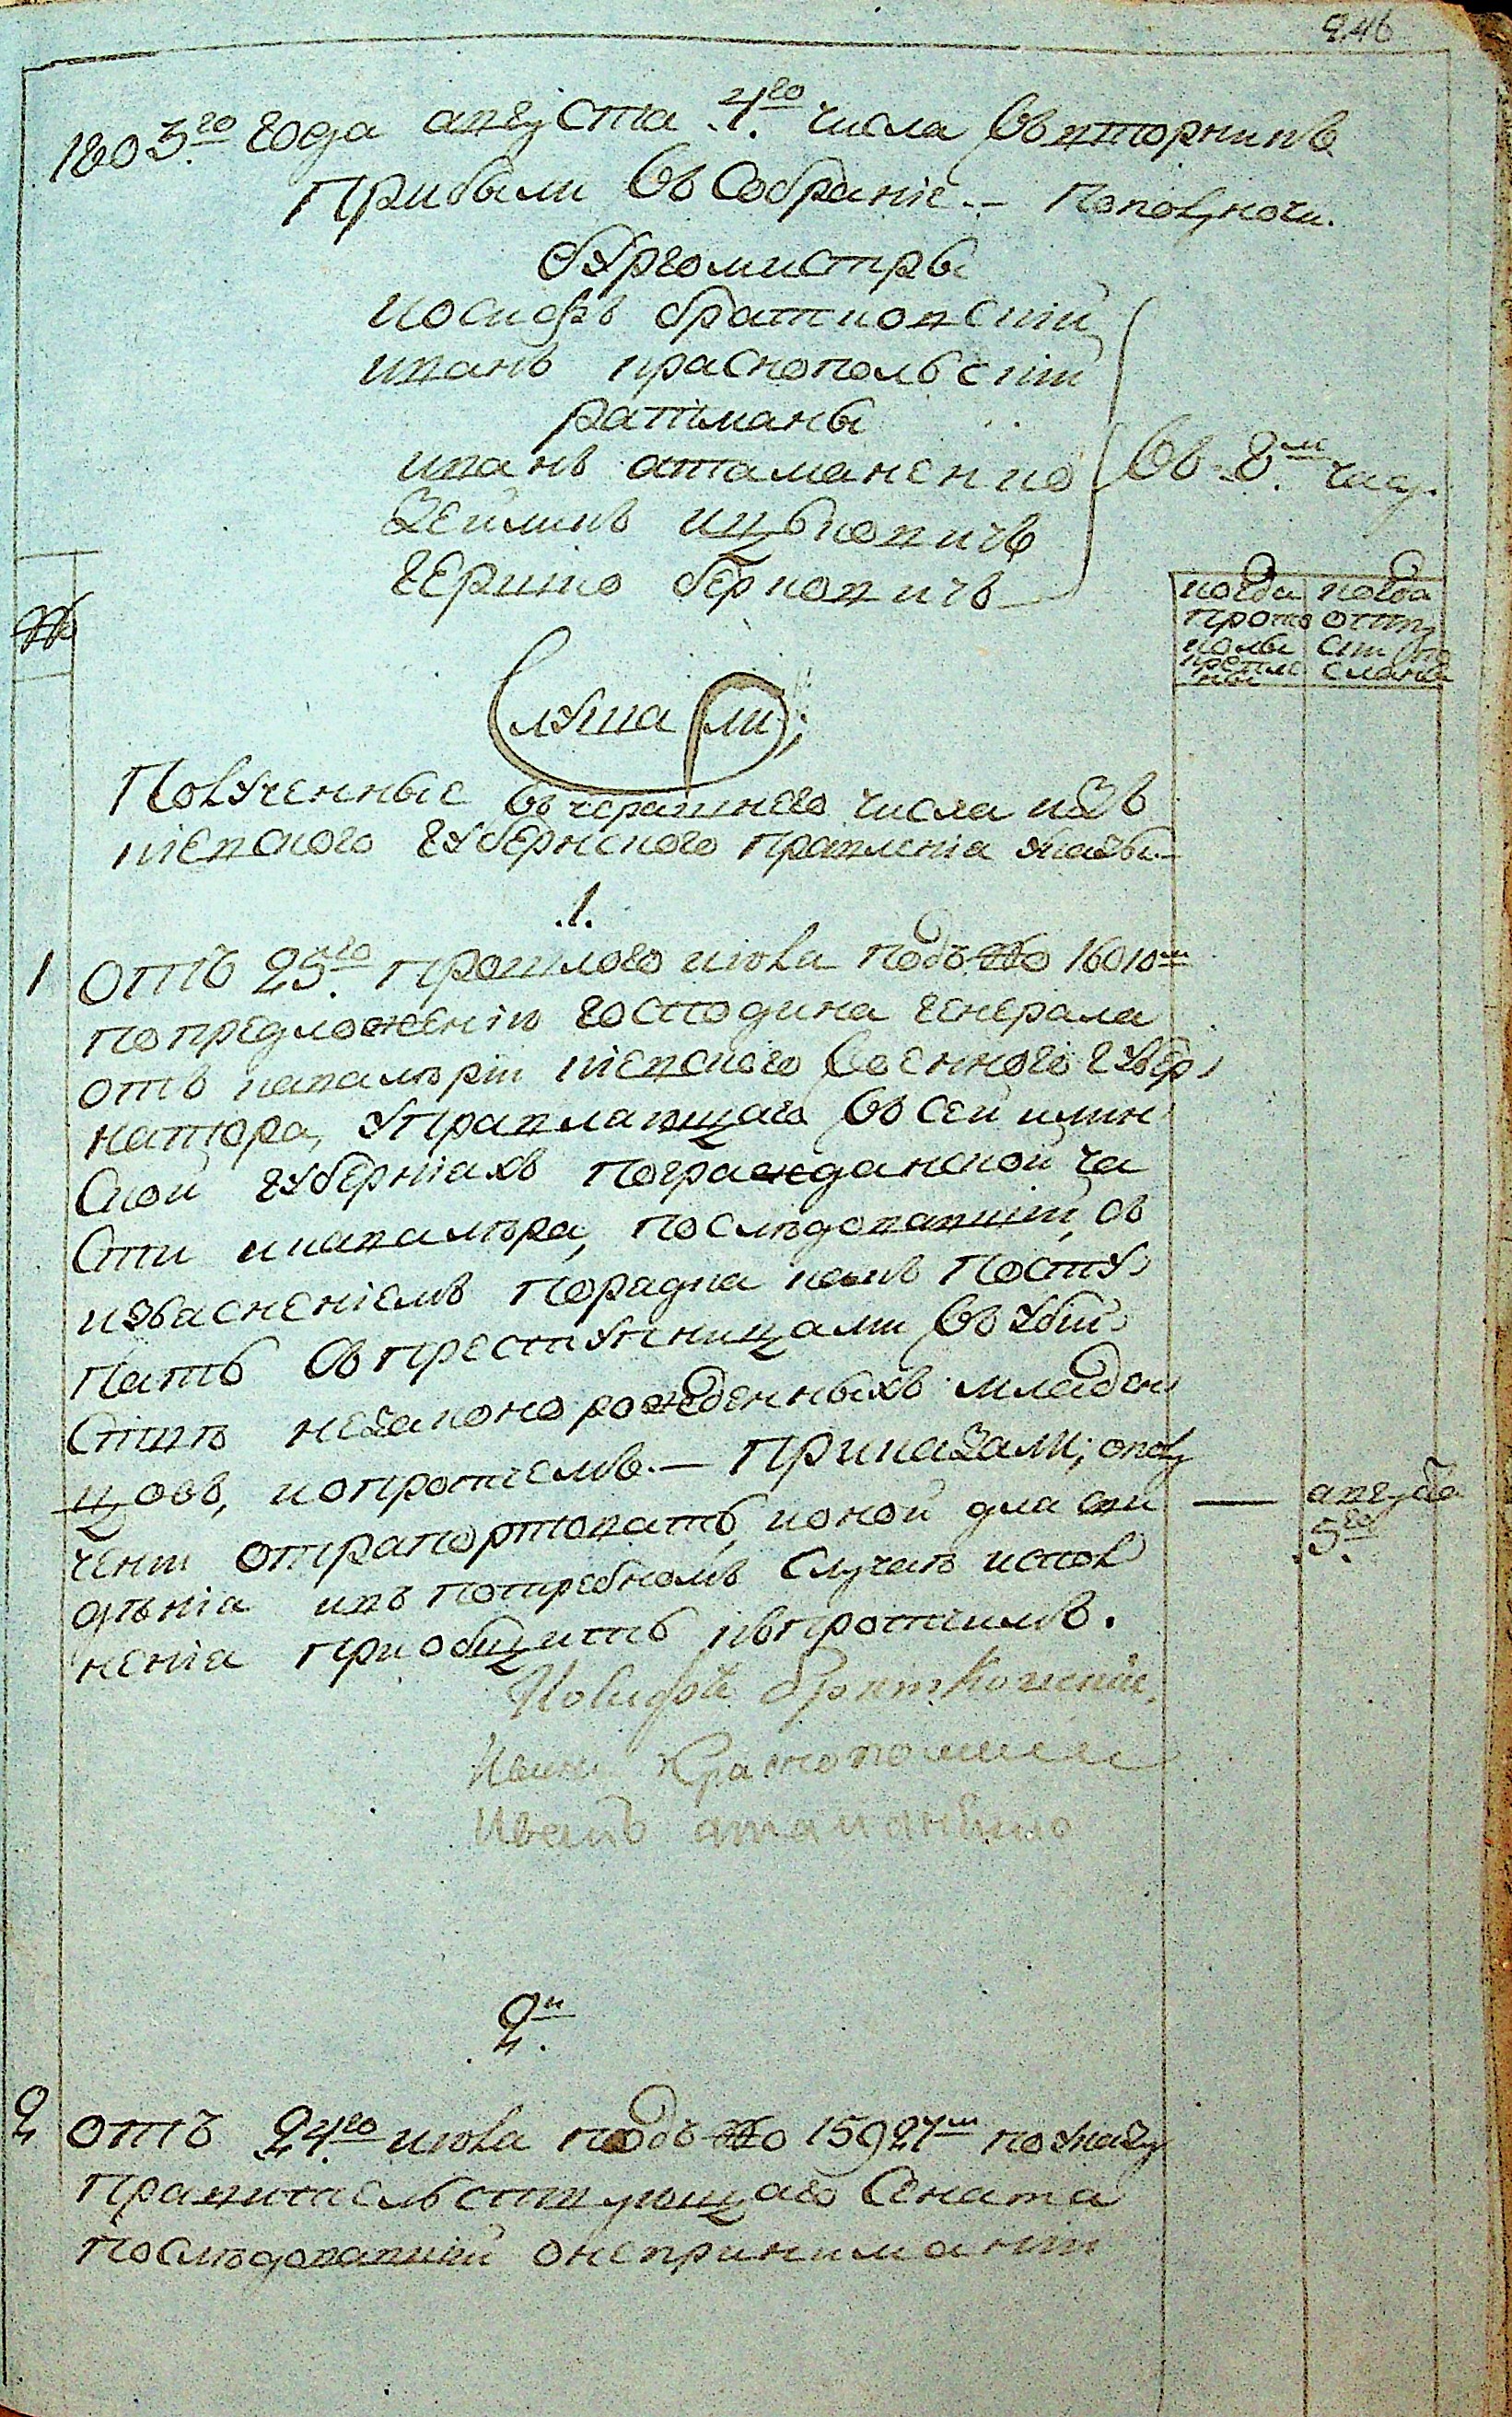 246
1803го года августа 4го числа въ вторникъ
Прибыли въ Собраніе. — Пополуночи.
бургомистры
иосифъ братковский
иванъ краснопольскій
ратманы
иванъ атаманенко
Зейликъ ицьковичъ
гершко берковичъ
въ 8м часу.
№
когда прото колы
когда отпу ски
Слушали;
Полученные въчерашнего числа изъ
кіевского губернского правленія указы. —
.1.
1 отъ 25го прошлого июля подъ №о 16010м
попредложенію господина генерала
отъ кавалеріи кіевского военного губер
натора, управляющаго въ сей имин
ской губерніахъ погражданской ча
сти и кавалера, последовавшій, съ
изъасненіемъ порадка какъ посту
пать съ преступницами въ убій
стве незаконорожденныхъ младен
цовъ, и опротчемъ. — Приказали; ополу
чении отрапортовать, и оной для све
дѣніа ивъ потребномъ случаѣ испол
неніа приобщить къ протчимъ.
августа 5го
Иосифъ Братковский,
Иванъ Краснополский
Иванъ атаманенко
2й
2 отъ 24го июля подъ №о 15927м по указу
правительствующаго Сената
последовавший онепринимании